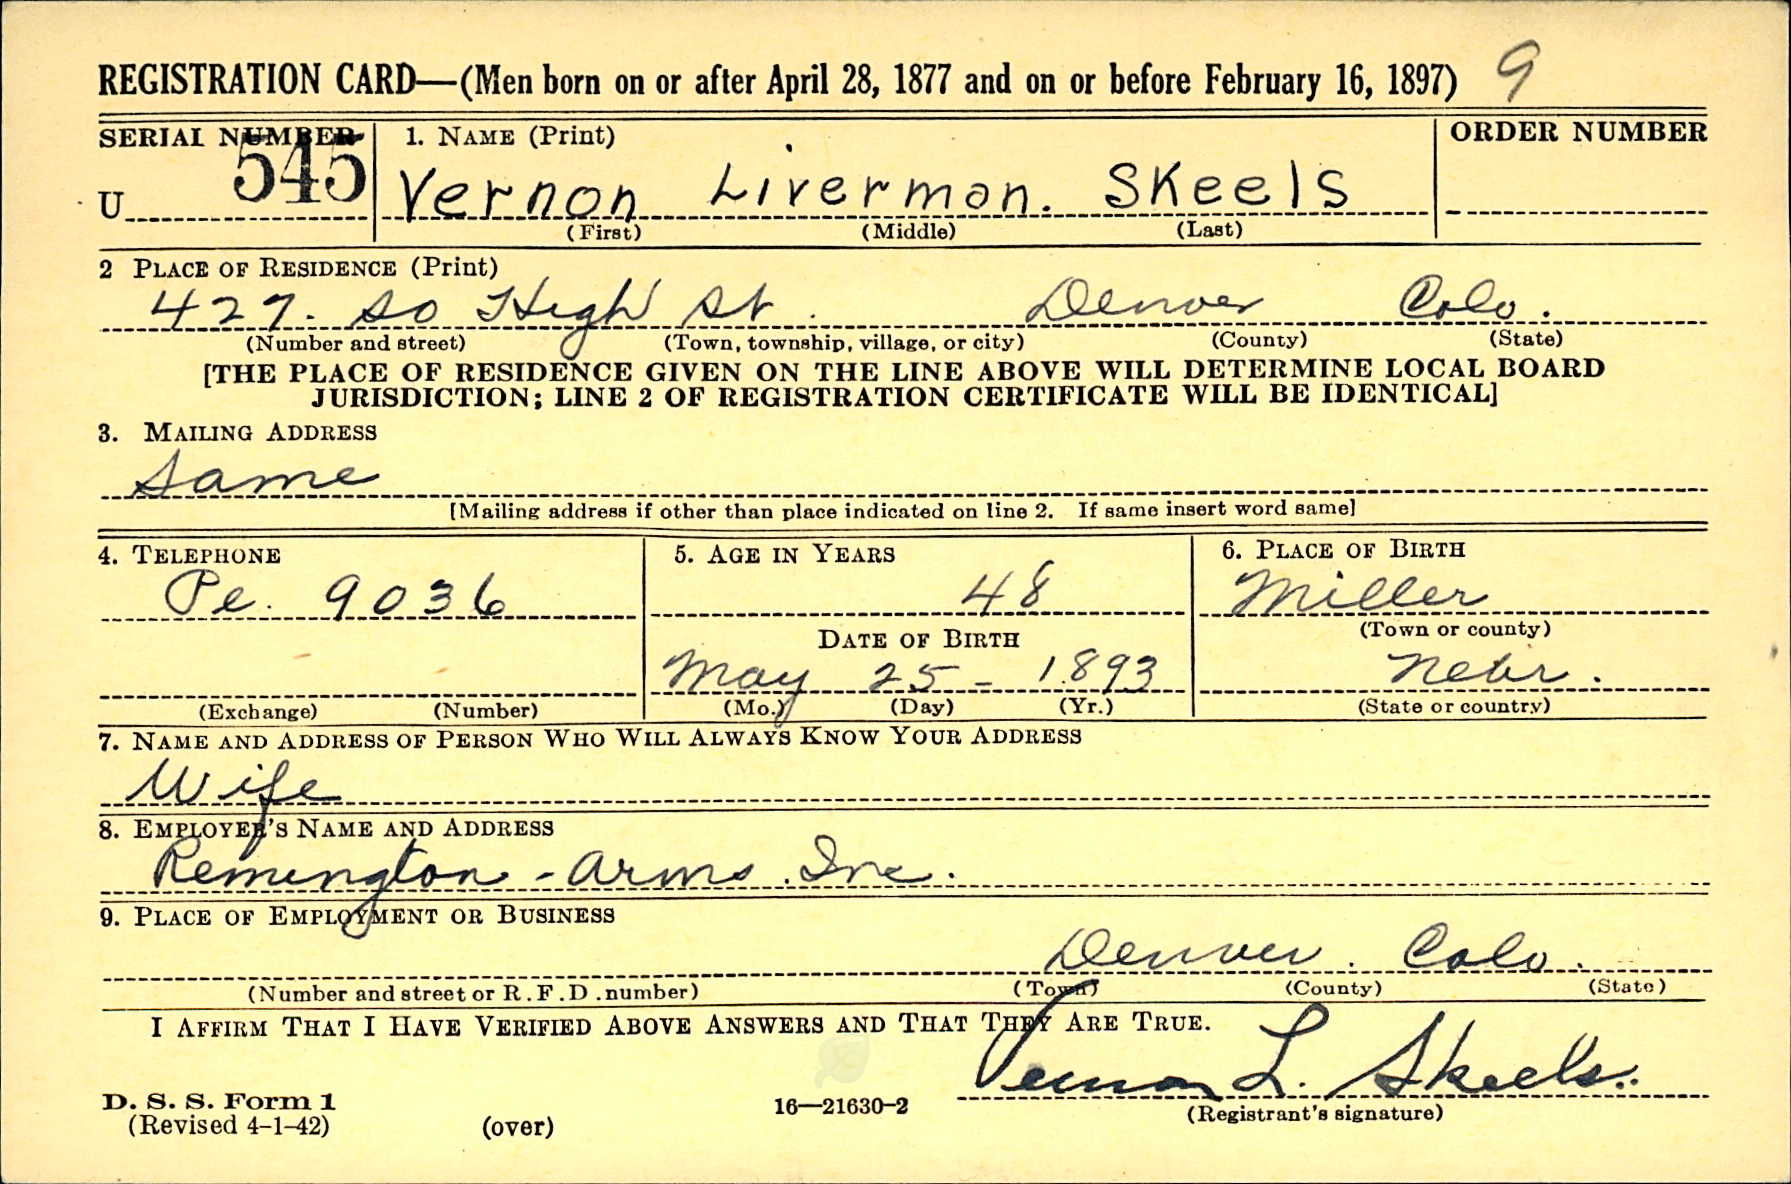 REGISTRATION CARD—(Men born on or after April 28, 1877 and on or before February 16, 1897) 9
SERIAL NUMBER 1. NAME (Print) ORDER NUMBER
U 545 Vernon Liverman. Skeels
(First) (Middle) (Last)
2 PLACE OF RESIDENCE (Print)
427. So High St. Denver Colo.
(Number and street) (Town, township, village, or city) (County) (State)
[THE PLACE OF RESIDENCE GIVEN ON THE LINE ABOVE WILL DETERMINE LOCAL BOARD
JURISDICTION; LINE 2 OF REGISTRATION CERTIFICATE WILL BE IDENTICAL]
3. MAILING ADDRESS
Same
[Mailing address if other than place indicated on line 2. If same insert word same]
4. TELEPHONE 5. AGE IN YEARS 6. PLACE OF BIRTH
Pe. 9036 48 Miller
DATE OF BIRTH (Town or county)
May 25 - 1893 Nebr.
(Exchange) (Number) (Mo.) (Day) (Yr.) (State or country)
7. NAME AND ADDRESS OF PERSON WHO WILL ALWAYS KNOW YOUR ADDRESS
Wife
8. EMPLOYER'S NAME AND ADDRESS
Remington - Arms. Inc.
9. PLACE OF EMPLOYMENT OR BUSINESS
Denver. Colo.
(Number and street or R.F.D. number) (Town) (County) (State)
I AFFIRM THAT I HAVE VERIFIED ABOVE ANSWERS AND THAT THEY ARE TRUE.
Vernon L. Skeels.
D. S. S. Form 1 16—21630-2 (Registrant's signature)
(Revised 4-1-42) (over)